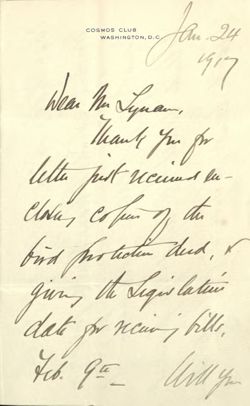 COSMOS CLUB
WASHINGTON, D.C.
Jan. 24
1917
Dear Mr Lyman,
Thank you for
letter just received en-
closing copies of the
bird protection deed, &
giving the Legislative
date for receiving bills,
Feb. 9th - Will you